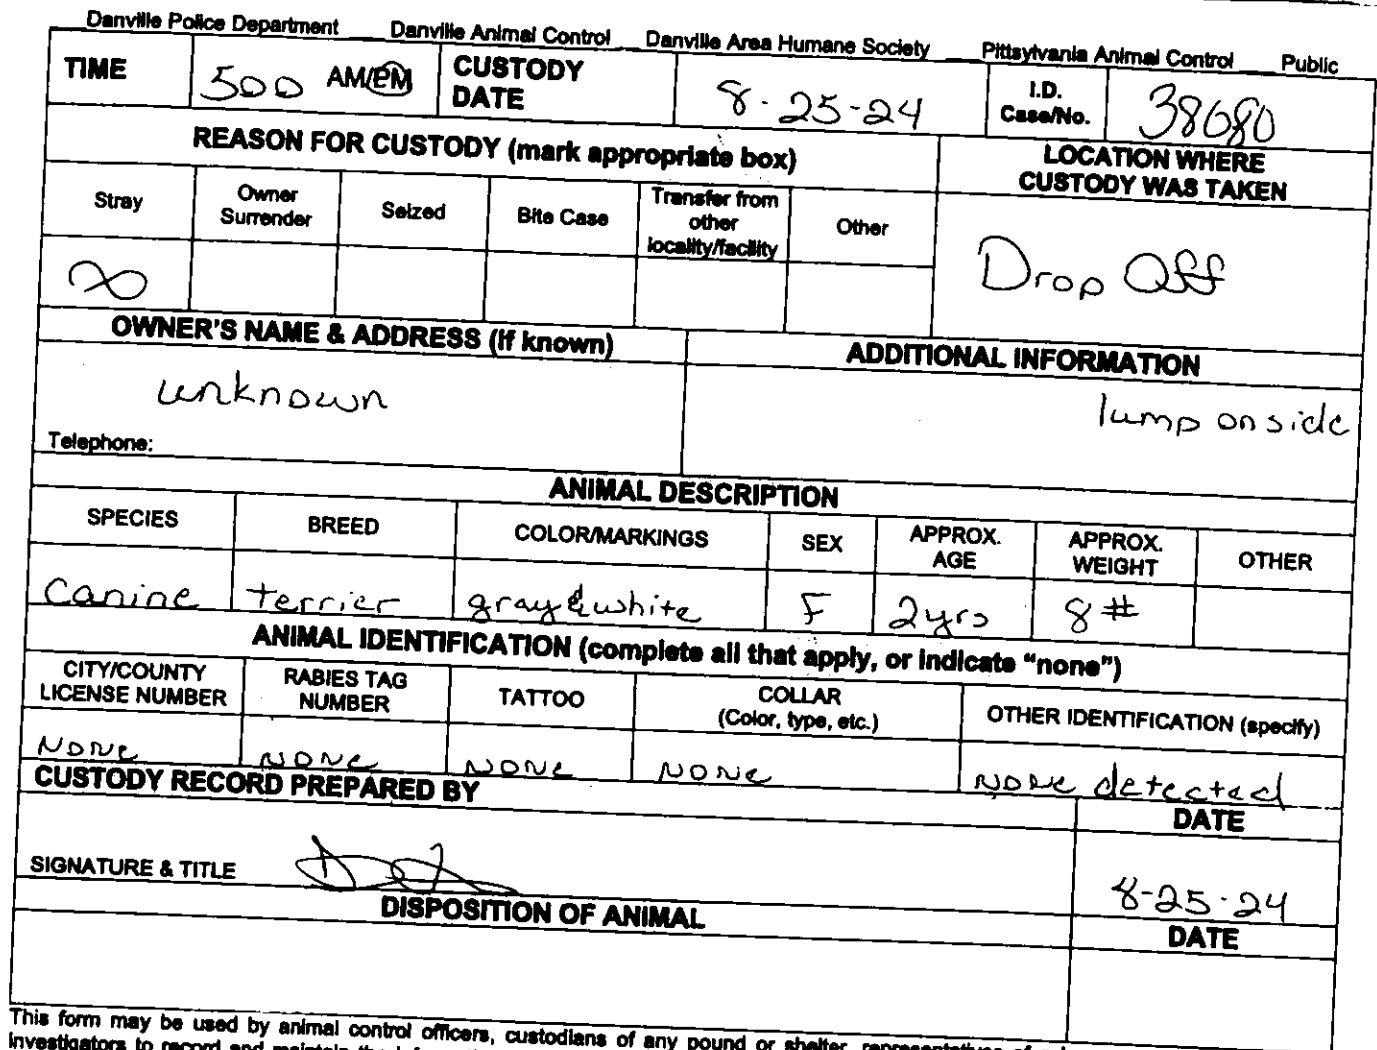 Danville Police Department ___ Danville Animal Control ___ Danville Area Humane Society ___ Pittsylvania Animal Control ___ Public
TIME 500 AM/PM CUSTODY DATE 8-25-24 I.D. Case/No. 38680
REASON FOR CUSTODY (mark appropriate box)
LOCATION WHERE
CUSTODY WAS TAKEN
Stray Owner Surrender Seized Bite Case Transfer from other locality/facility Other
Drop Off
OWNER'S NAME & ADDRESS (if known) ADDITIONAL INFORMATION
unknown
lump on side
Telephone:
ANIMAL DESCRIPTION
SPECIES BREED COLOR/MARKINGS SEX APPROX. AGE APPROX. WEIGHT OTHER
Canine terrier gray & white F 2yrs 8#
ANIMAL IDENTIFICATION (complete all that apply, or indicate "none")
CITY/COUNTY LICENSE NUMBER RABIES TAG NUMBER TATTOO COLLAR (Color, type, etc.) OTHER IDENTIFICATION (specify)
none none none none none detected
CUSTODY RECORD PREPARED BY DATE
SIGNATURE & TITLE 8-25-24
DISPOSITION OF ANIMAL DATE
This form may be used by animal control officers, custodians of any pound or shelter, representatives of
investigators to record and maintain the